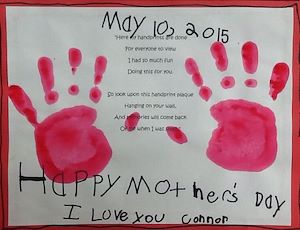 May 10, 2015
"Here my handprints are done
For everyone to view
I had so much fun
Doing this for you.
So look upon this handprint plaque
Hanging on your wall,
And memories will come back
Of me when I was small."
HAPPY MOTher's DAY
I Love You Connor